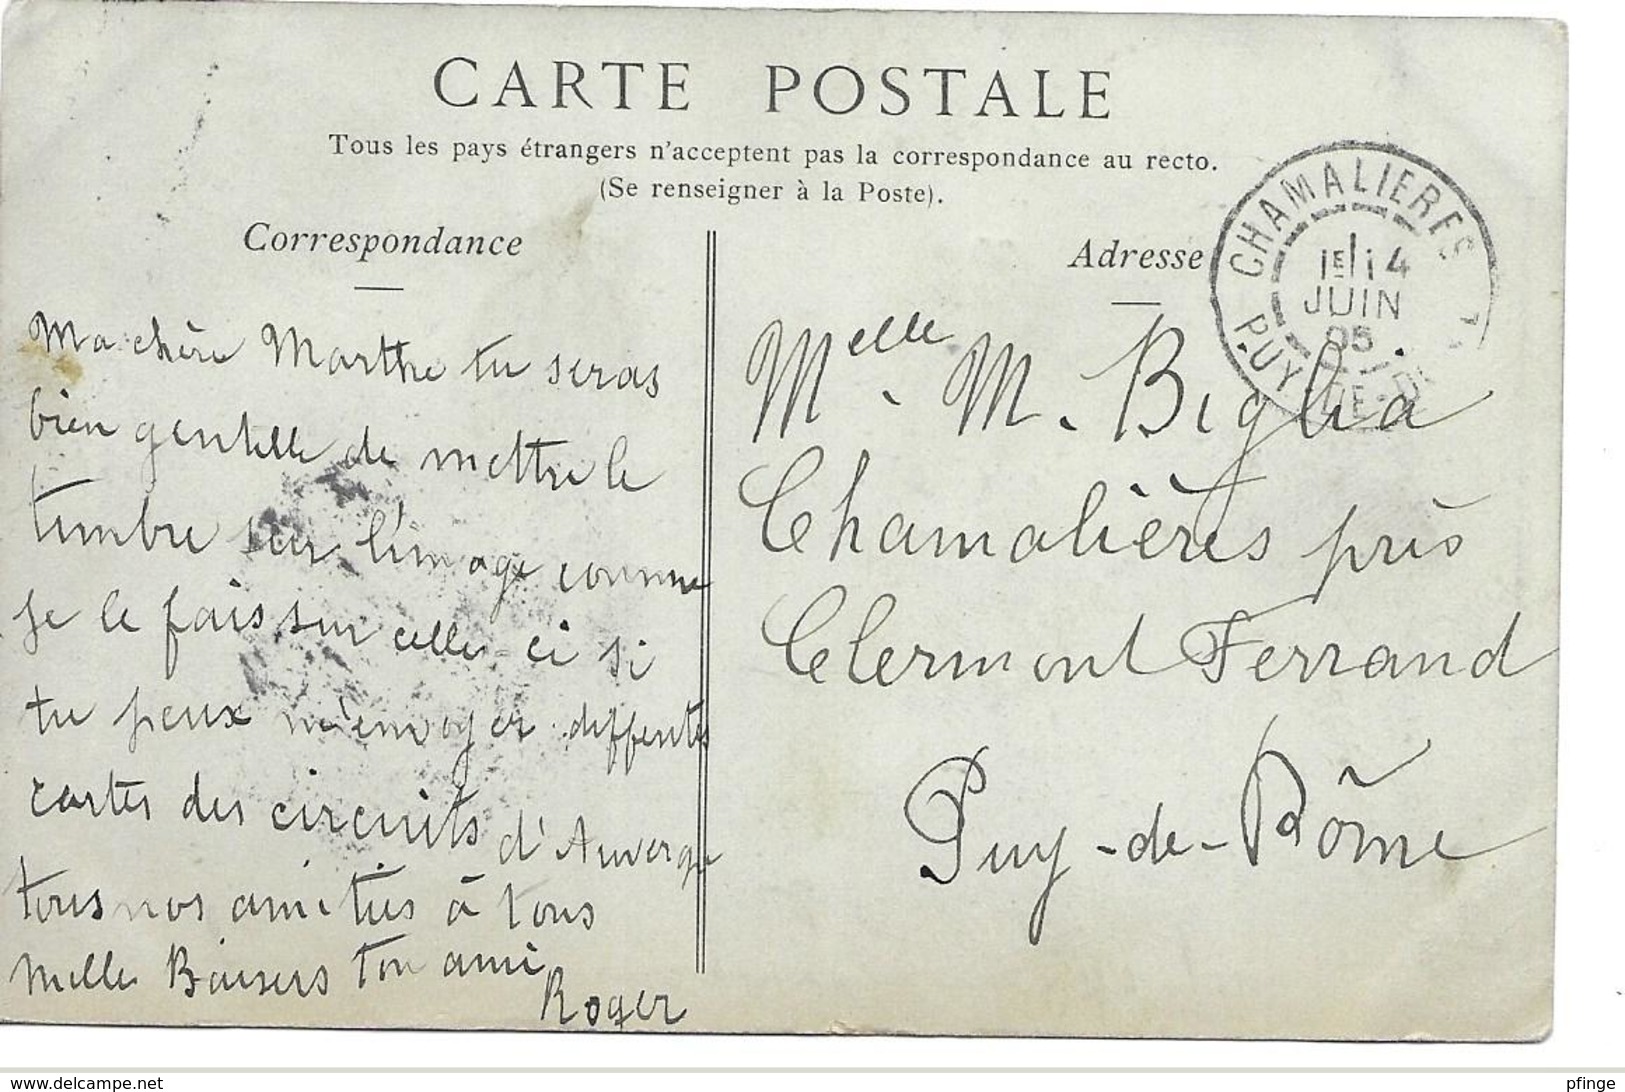 CARTE POSTALE
Tous les pays étrangers n'acceptent pas la correspondance au recto.
(Se renseigner à la Poste).
Correspondance
Ma chère Marthe tu seras
bien gentille de mettre le
timbre sur l'image comme
je le fais sur celle ci si
tu peux m'envoyer differentes
cartes des circuits d'Auvergne
tous nos amitiés à tous
mille Baisers ton ami
Roger
Adresse
CHAMALIERES
14
JUIN
05
PUY-DE-D
Melle. M. Biglia
Chamalières près
Clermont Ferrand
Puy-de-Dôme
www.delcampe.net
pfinge